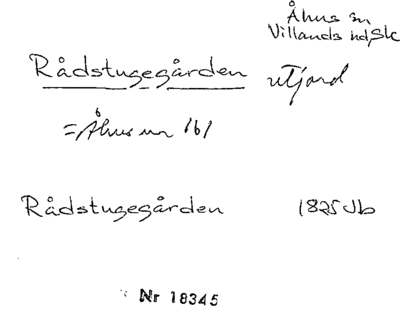 Åhus sn
Villands hd, Sk
Rådstugegården utjord
= Åhus nr 161
Rådstugegården 1825 Jb
Nr 18345